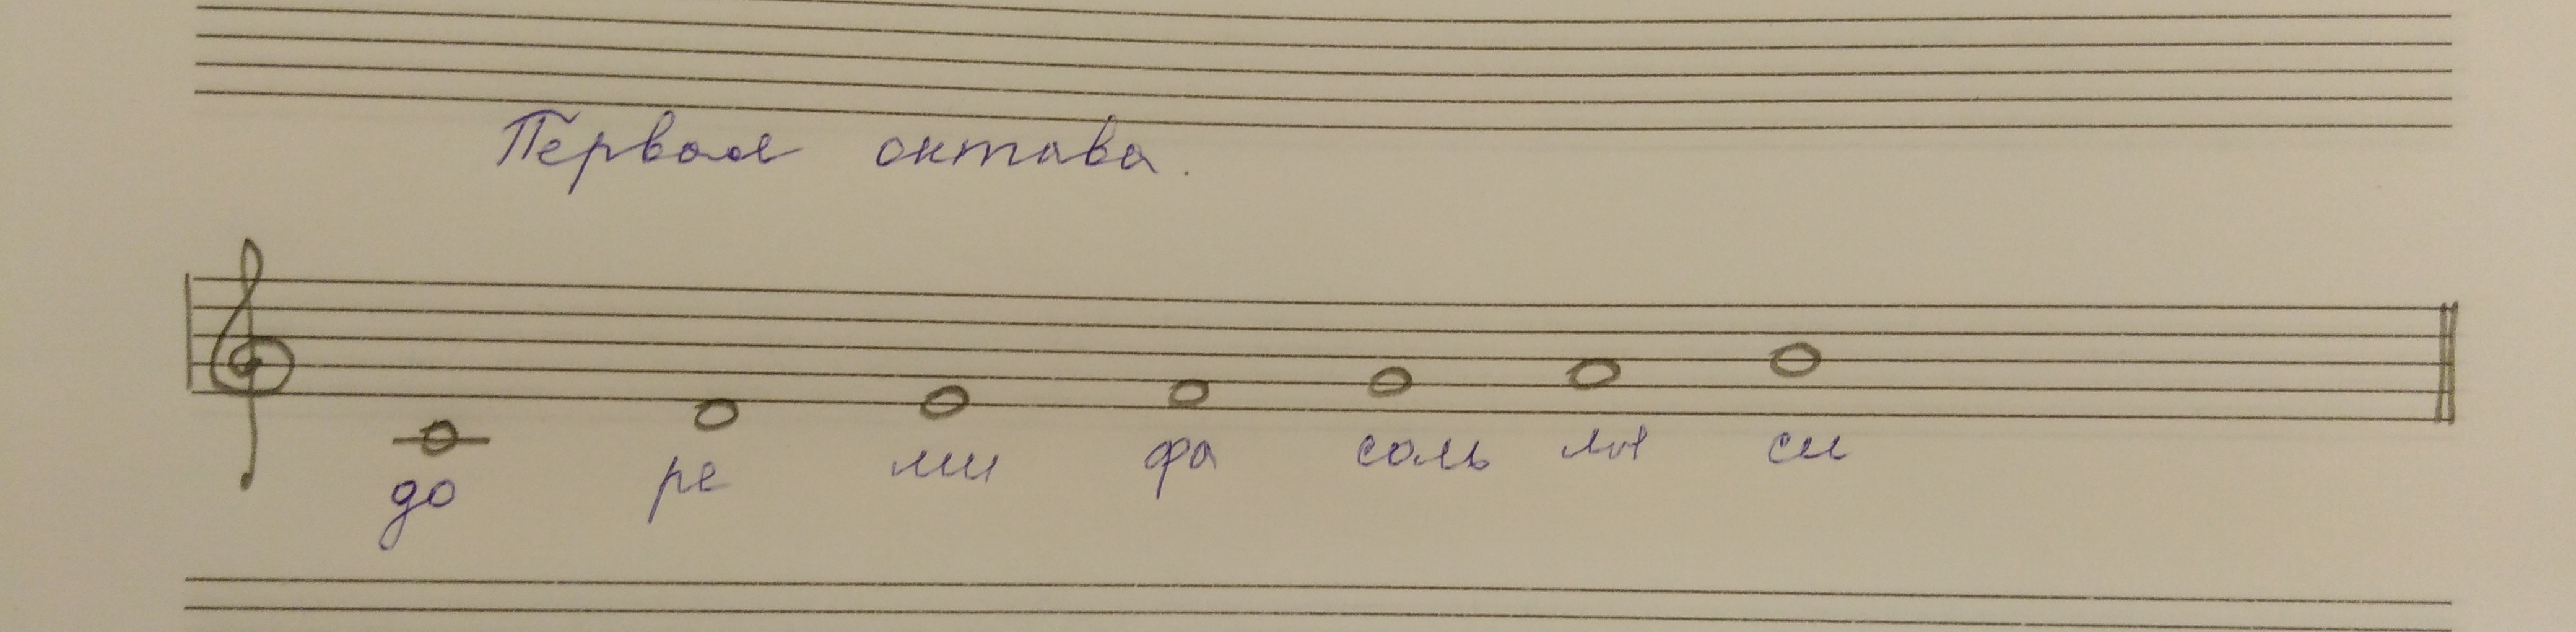 Первая октава.
до ре ми фа соль ля си